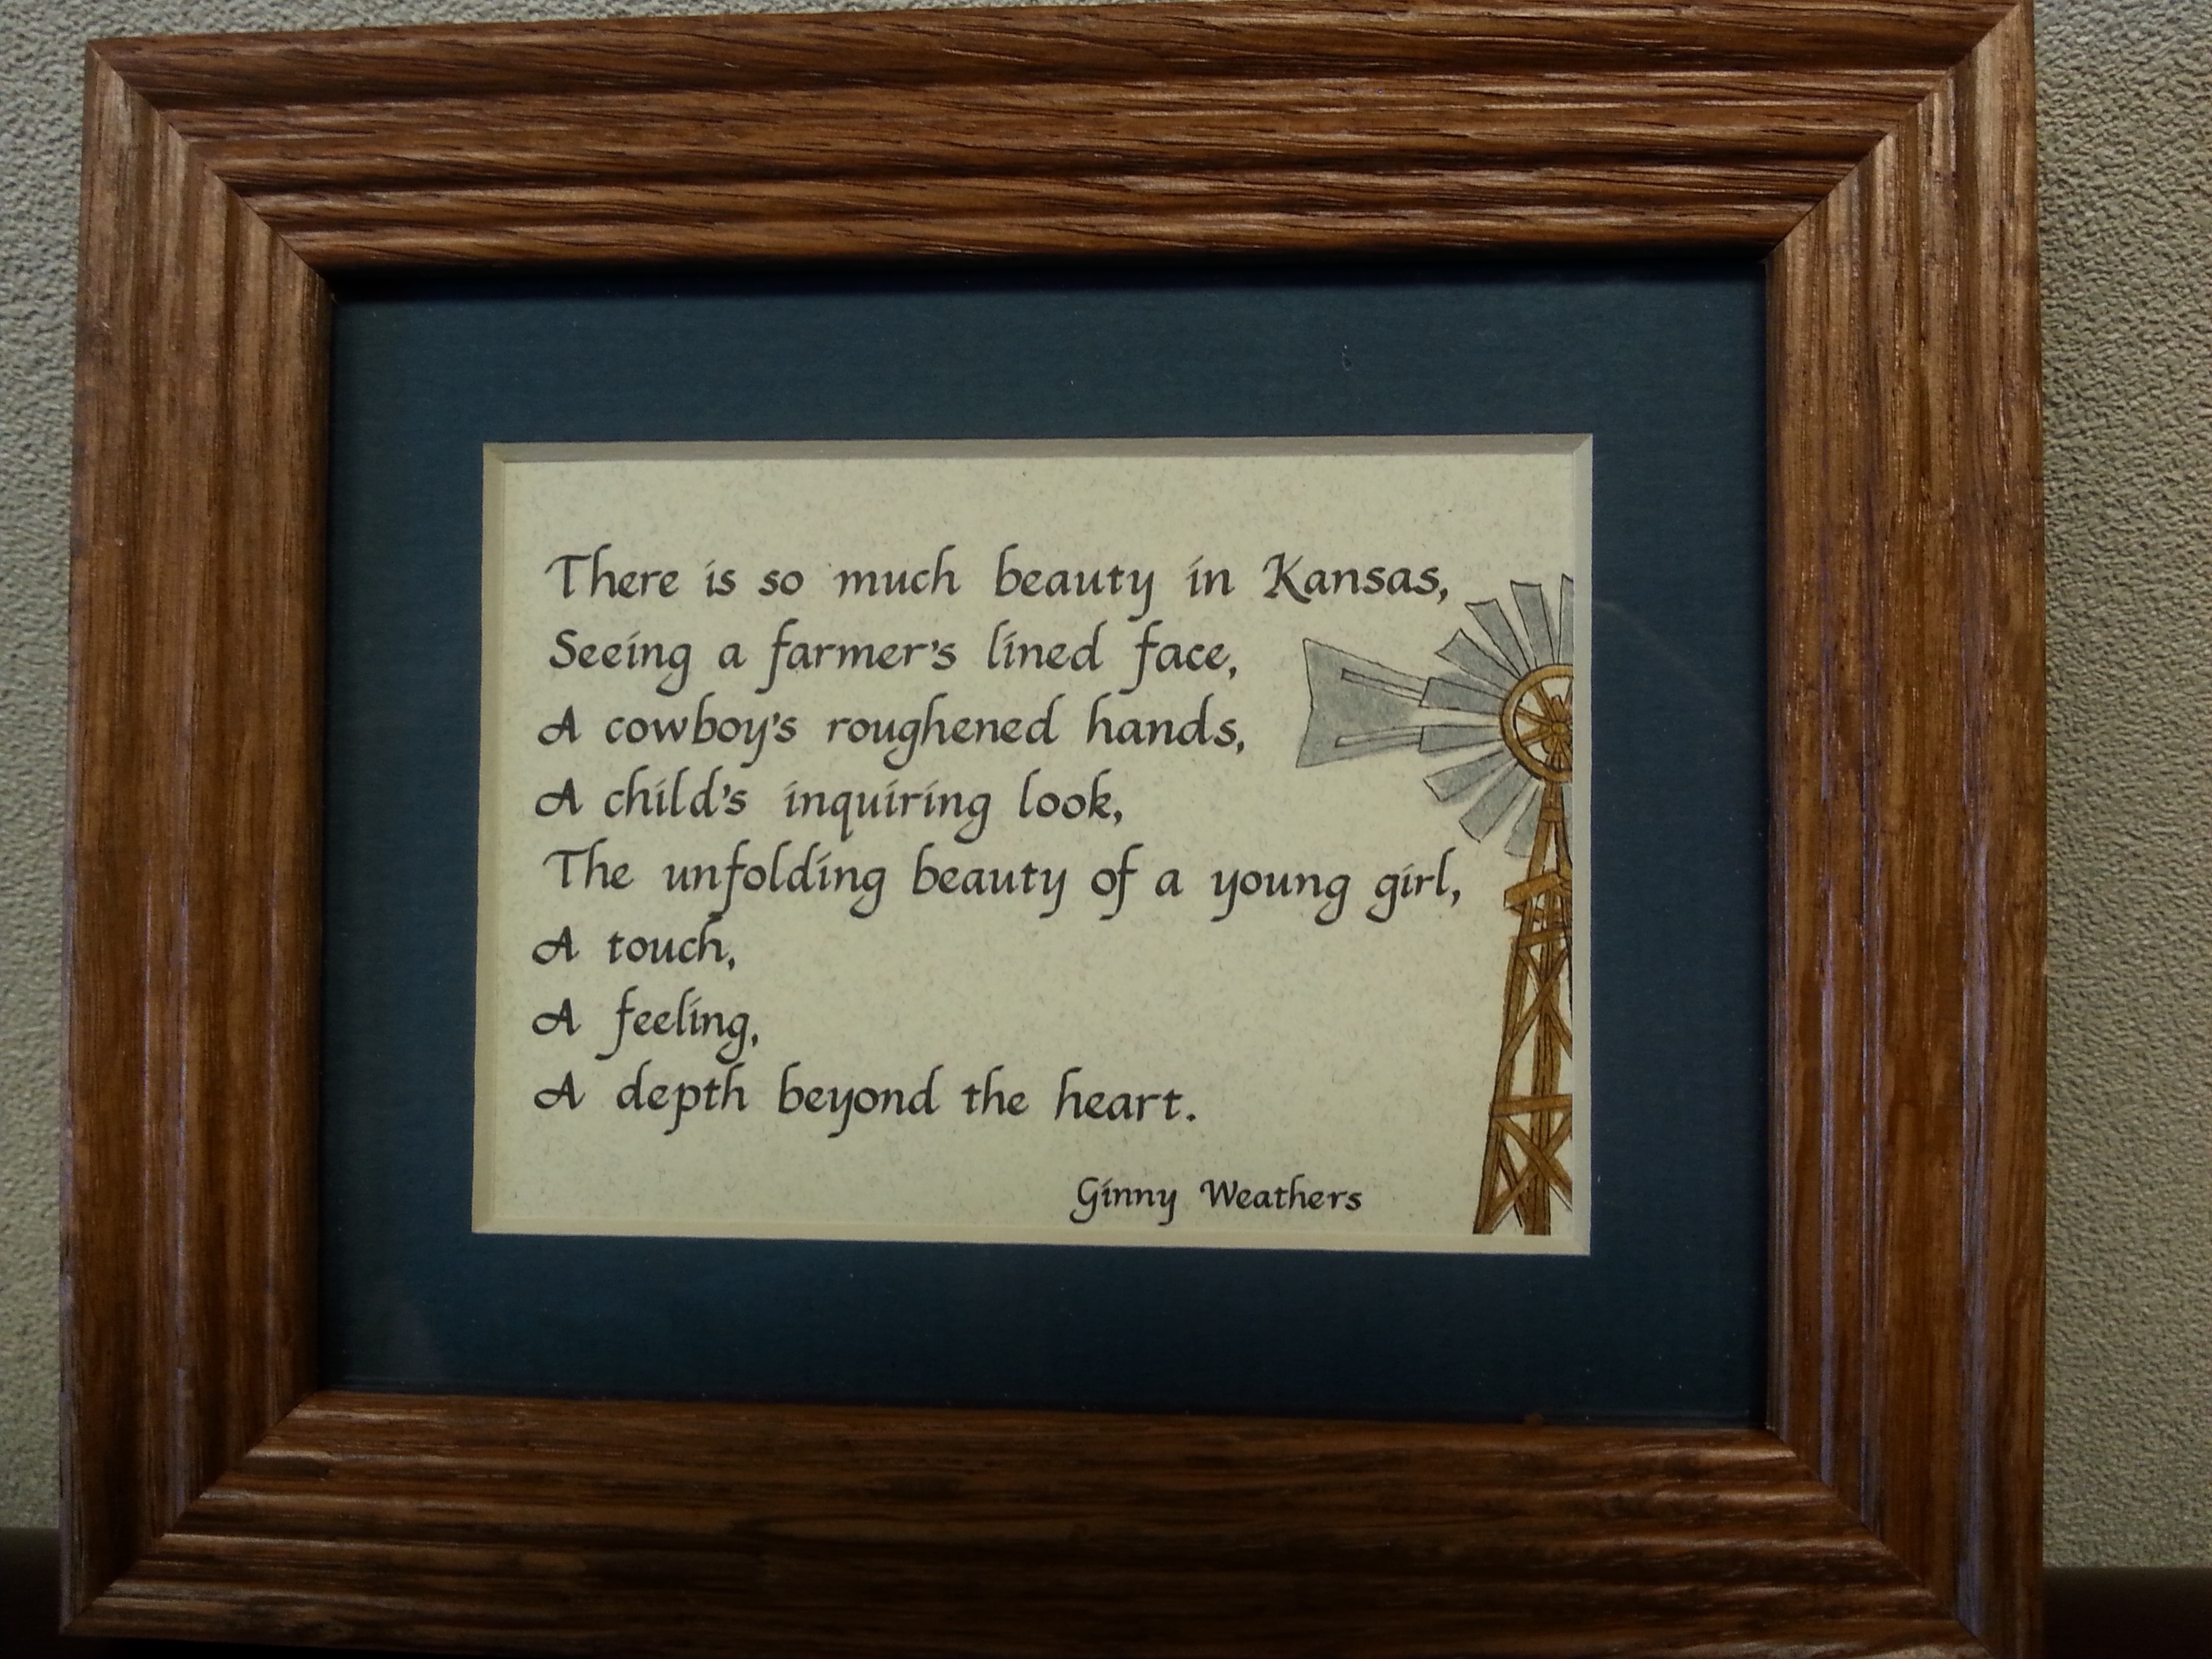 There is so much beauty in Kansas,
Seeing a farmer's lined face,
A cowboy's roughened hands,
A child's inquiring look,
The unfolding beauty of a young girl,
A touch,
A feeling,
A depth beyond the heart.
Ginny Weathers